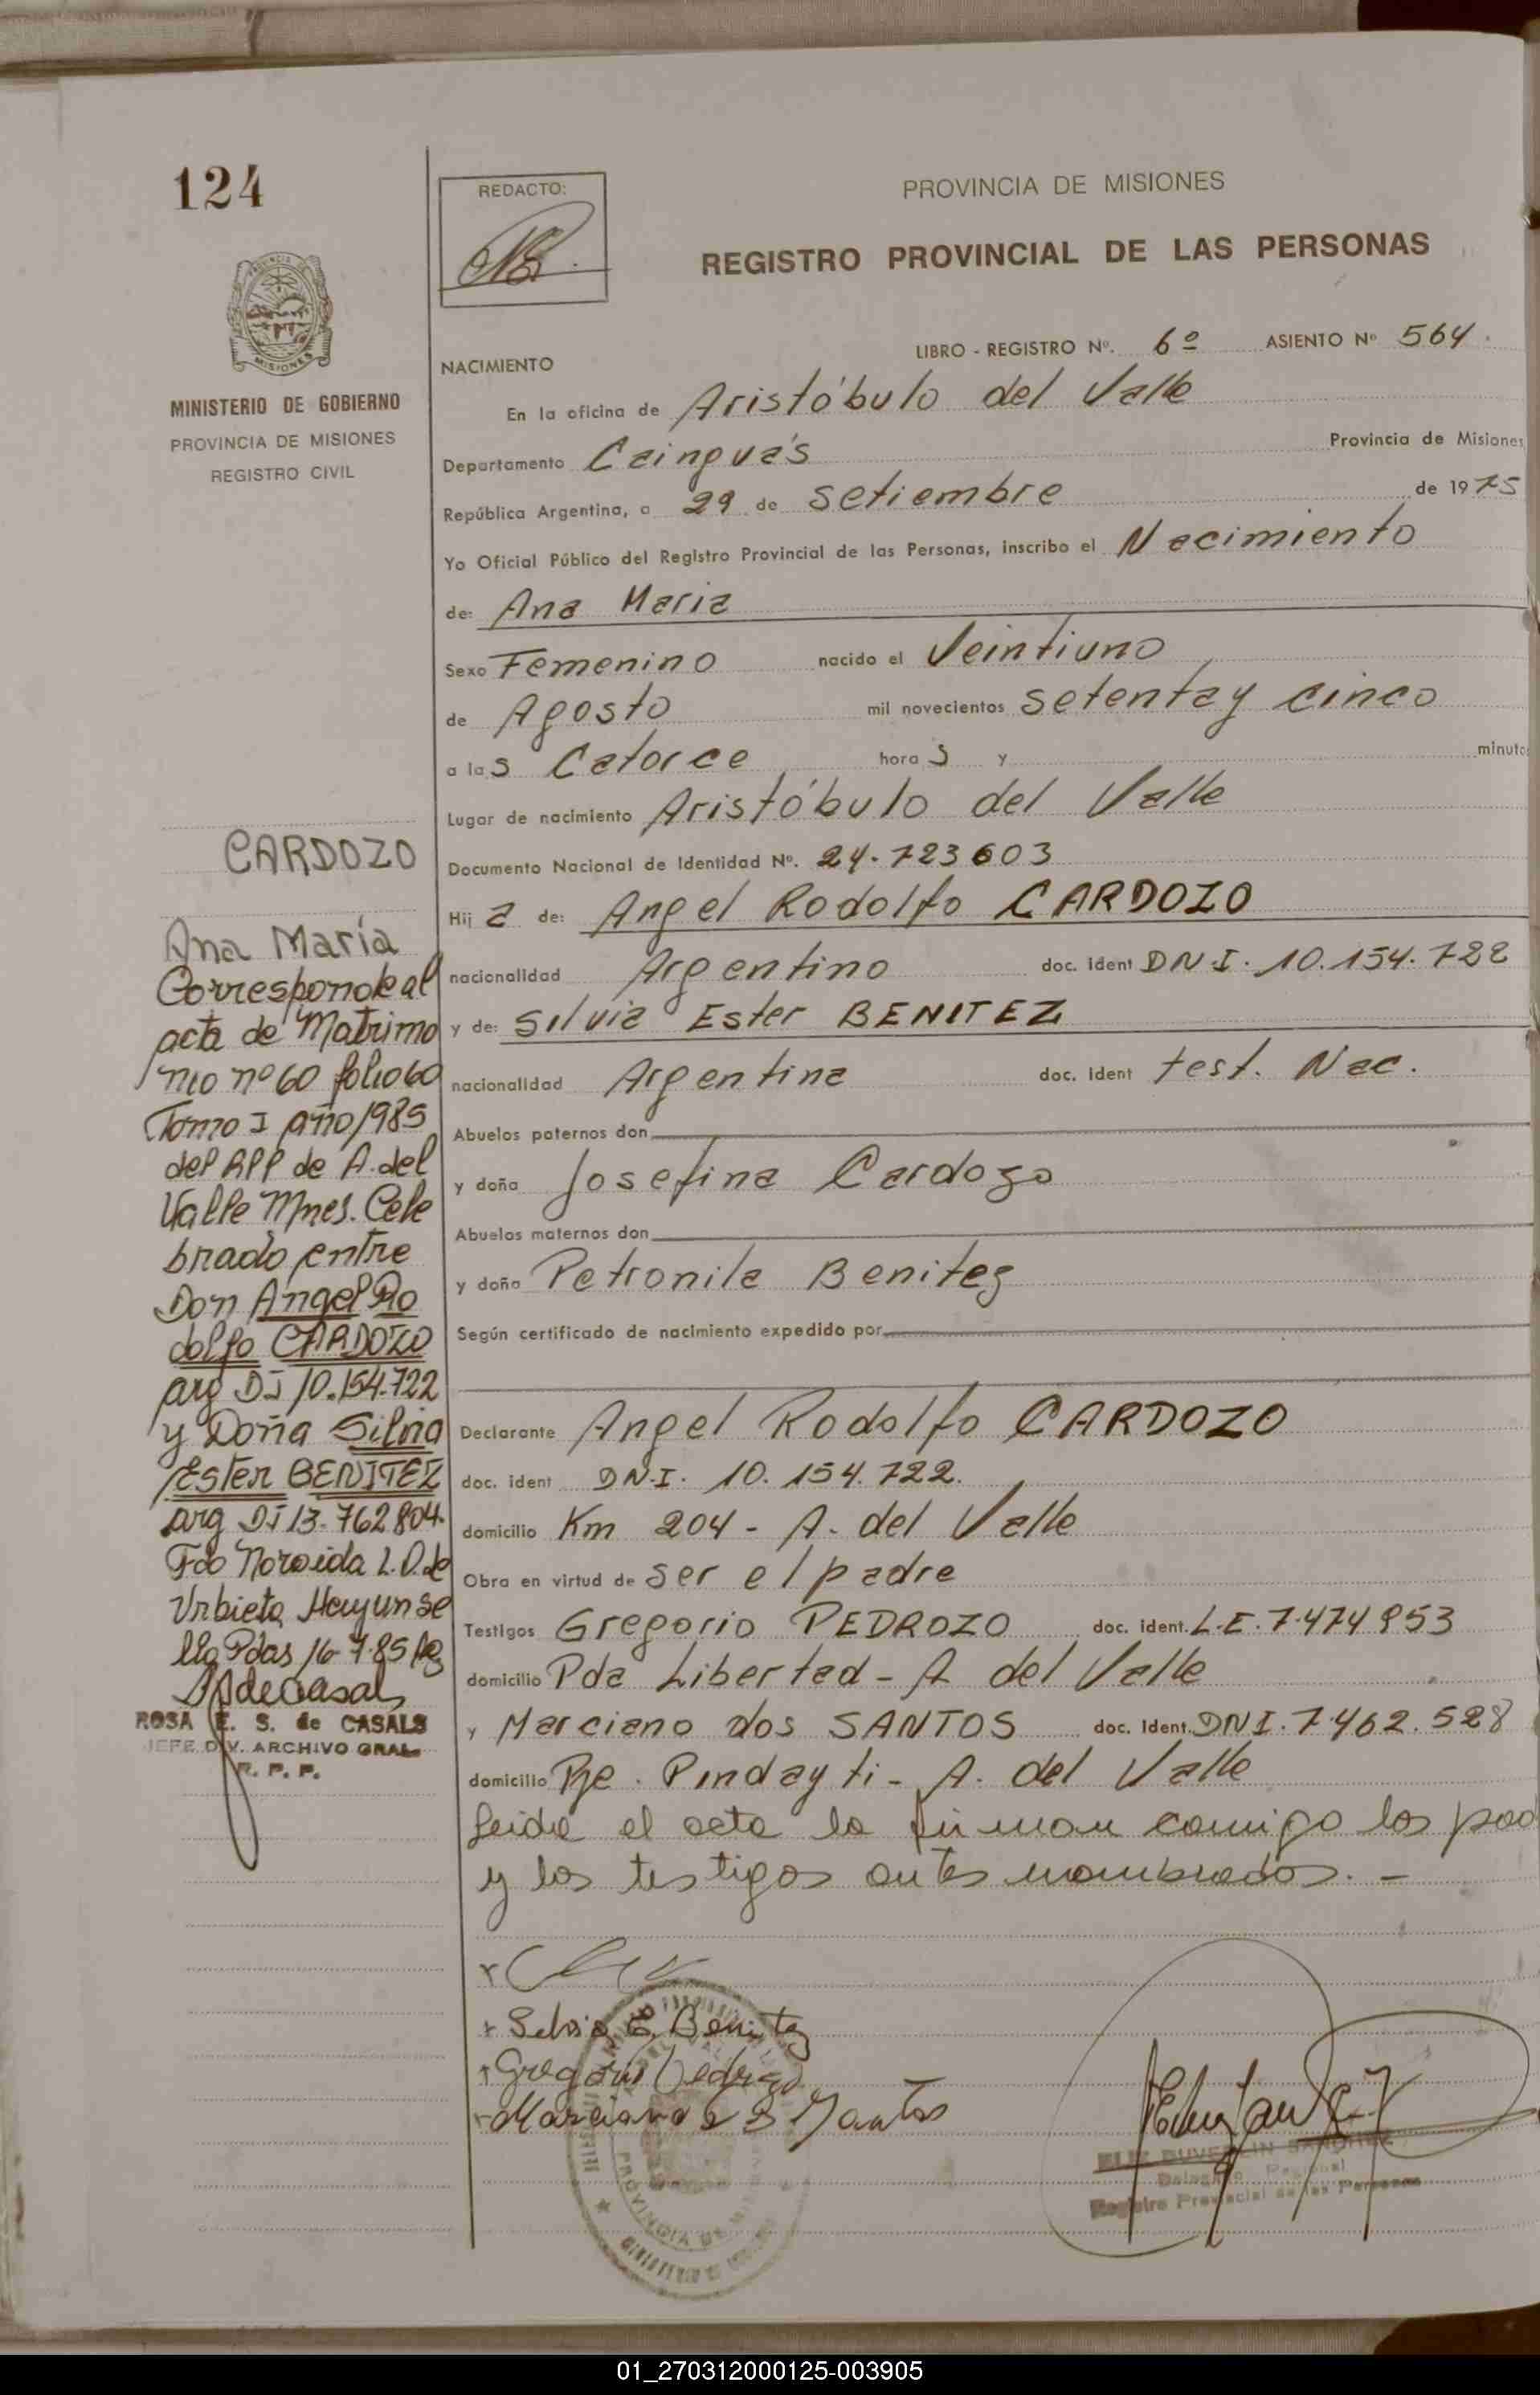 124
MINISTERIO DE GOBIERNO
PROVINCIA DE MISIONES
REGISTRO CIVIL
CARDOZO
Ana María
Corresponde al
acta de Matrimo
nio nº 60 folio 60
Tomo I año 1985
del RPP de A. del
Valle Mnes. Cele
brado entre
Don Angel Ro
dolfo CARDOZO
arg DI 10.154.722
y Doña Silvia
Ester BENITEZ
arg DI 13.762804.
Fdo Noroida L.D. de
Urbieta Hay un se
llo Pdas 16-7-85
ROSA E. S. de CASALS
JEFE DIV. ARCHIVO GRAL.
R. P. P.
REDACTO:
PROVINCIA DE MISIONES
REGISTRO PROVINCIAL DE LAS PERSONAS
LIBRO - REGISTRO Nº. 6º ASIENTO Nº 564.
NACIMIENTO
En la oficina de Aristóbulo del Valle
Departamento Cainguás Provincia de Misiones
República Argentina, a 29 de Setiembre de 1975
Yo Oficial Público del Registro Provincial de las Personas, inscribo el Nacimiento
de: Ana Maria
Sexo Femenino nacido el Veintiuno
de Agosto mil novecientos Setenta y cinco
a las Catorce horas y minuto
Lugar de nacimiento Aristóbulo del Valle
Documento Nacional de Identidad Nº. 24.723603
Hija de: Angel Rodolfo CARDOZO
nacionalidad Argentino doc. ident DN.I. 10.154.722
y de: Silvia Ester BENITEZ
nacionalidad Argentina doc. ident test. Nac.
Abuelos paternos don
y doña Josefina Cardozo
Abuelos maternos don
y doña Petronila Benitez
Según certificado de nacimiento expedido por
Declarante Angel Rodolfo CARDOZO
doc. ident DN.I. 10.154.722.
domicilio Km 204 - A. del Valle
Obra en virtud de ser el padre
Testigos Gregorio PEDROZO doc. ident. L.E. 7.474953
domicilio Pda Libertad - A del Valle
y Marciano dos SANTOS doc. ident. DNI. 7.462.528
domicilio Pje. Pindayti - A. del Valle
Leida el acta la firman comigo los pad
y los testigos antes nombrados. -
Silvia E. Benitez
Gregorio Pedrozo
Marciano d S Santos
SANCHEZ
Registro Provincial de las Personas
PROVINCIA DE MISIONES
01_270312000125-003905